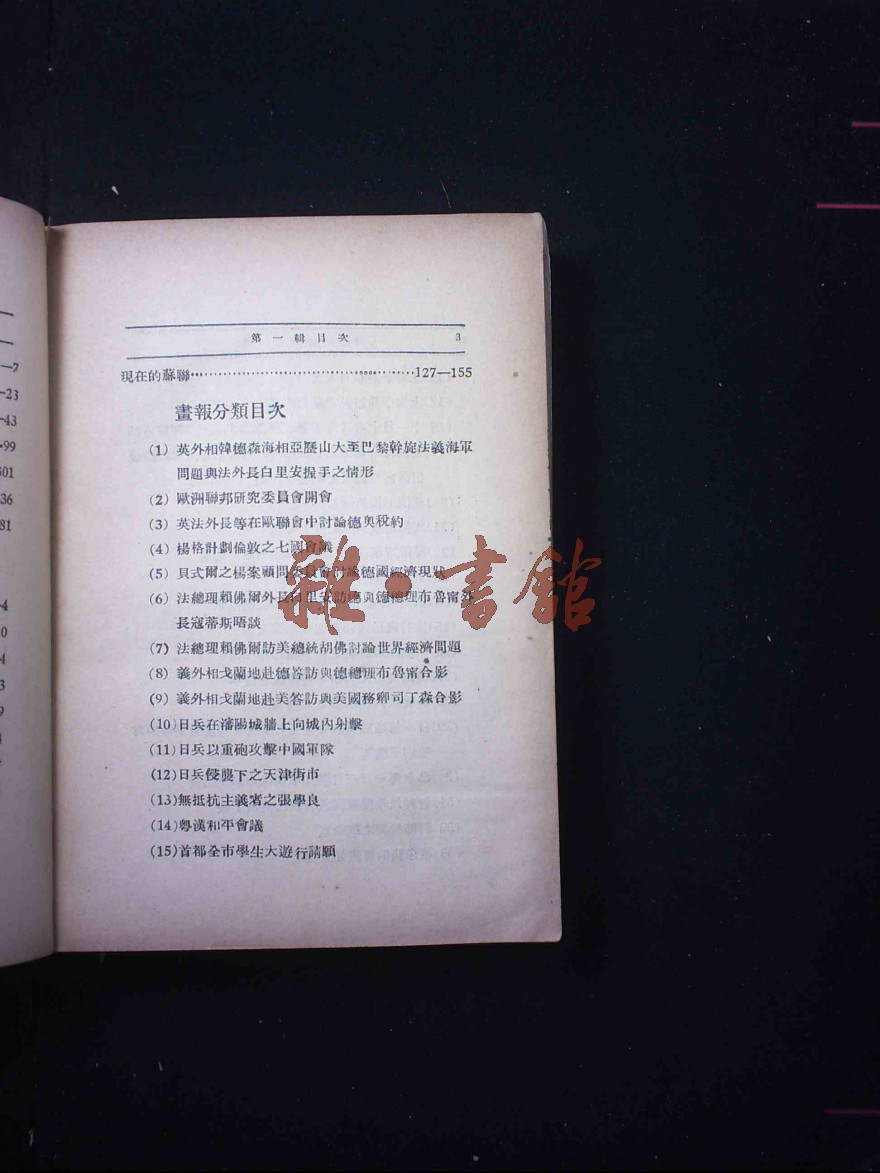 第一輯目次 3
現在的蘇聯……127—155
畫報分類目次
(1) 英外相韓德森海相亞歷山大至巴黎斡旋法義海軍
問題與法外長白里安握手之情形
(2) 歐洲聯邦研究委員會開會
(3) 英法外長等在歐聯會中討論德奧稅約
(4) 楊格計劃倫敦之七國會議
(5) 貝式爾之楊案顧問委員會討論德國經濟現狀
(6) 法總理賴佛爾外長白里安訪德與德總理布魯甯外
長寇蒂斯晤談
(7) 法總理賴佛爾訪美總統胡佛討論世界經濟問題
(8) 義外相戈蘭地赴德答訪與德總理布魯甯合影
(9) 義外相戈蘭地赴美答訪與美國務卿司丁森合影
(10) 日兵在瀋陽城牆上向城內射擊
(11) 日兵以重砲攻擊中國軍隊
(12) 日兵侵襲下之天津街市
(13) 無抵抗主義者之張學良
(14) 粵漢和平會議
(15) 首都全市學生大遊行請願
雜·書館
—7
—23
—43
•99
301
36
81
-4
0
4
3
9